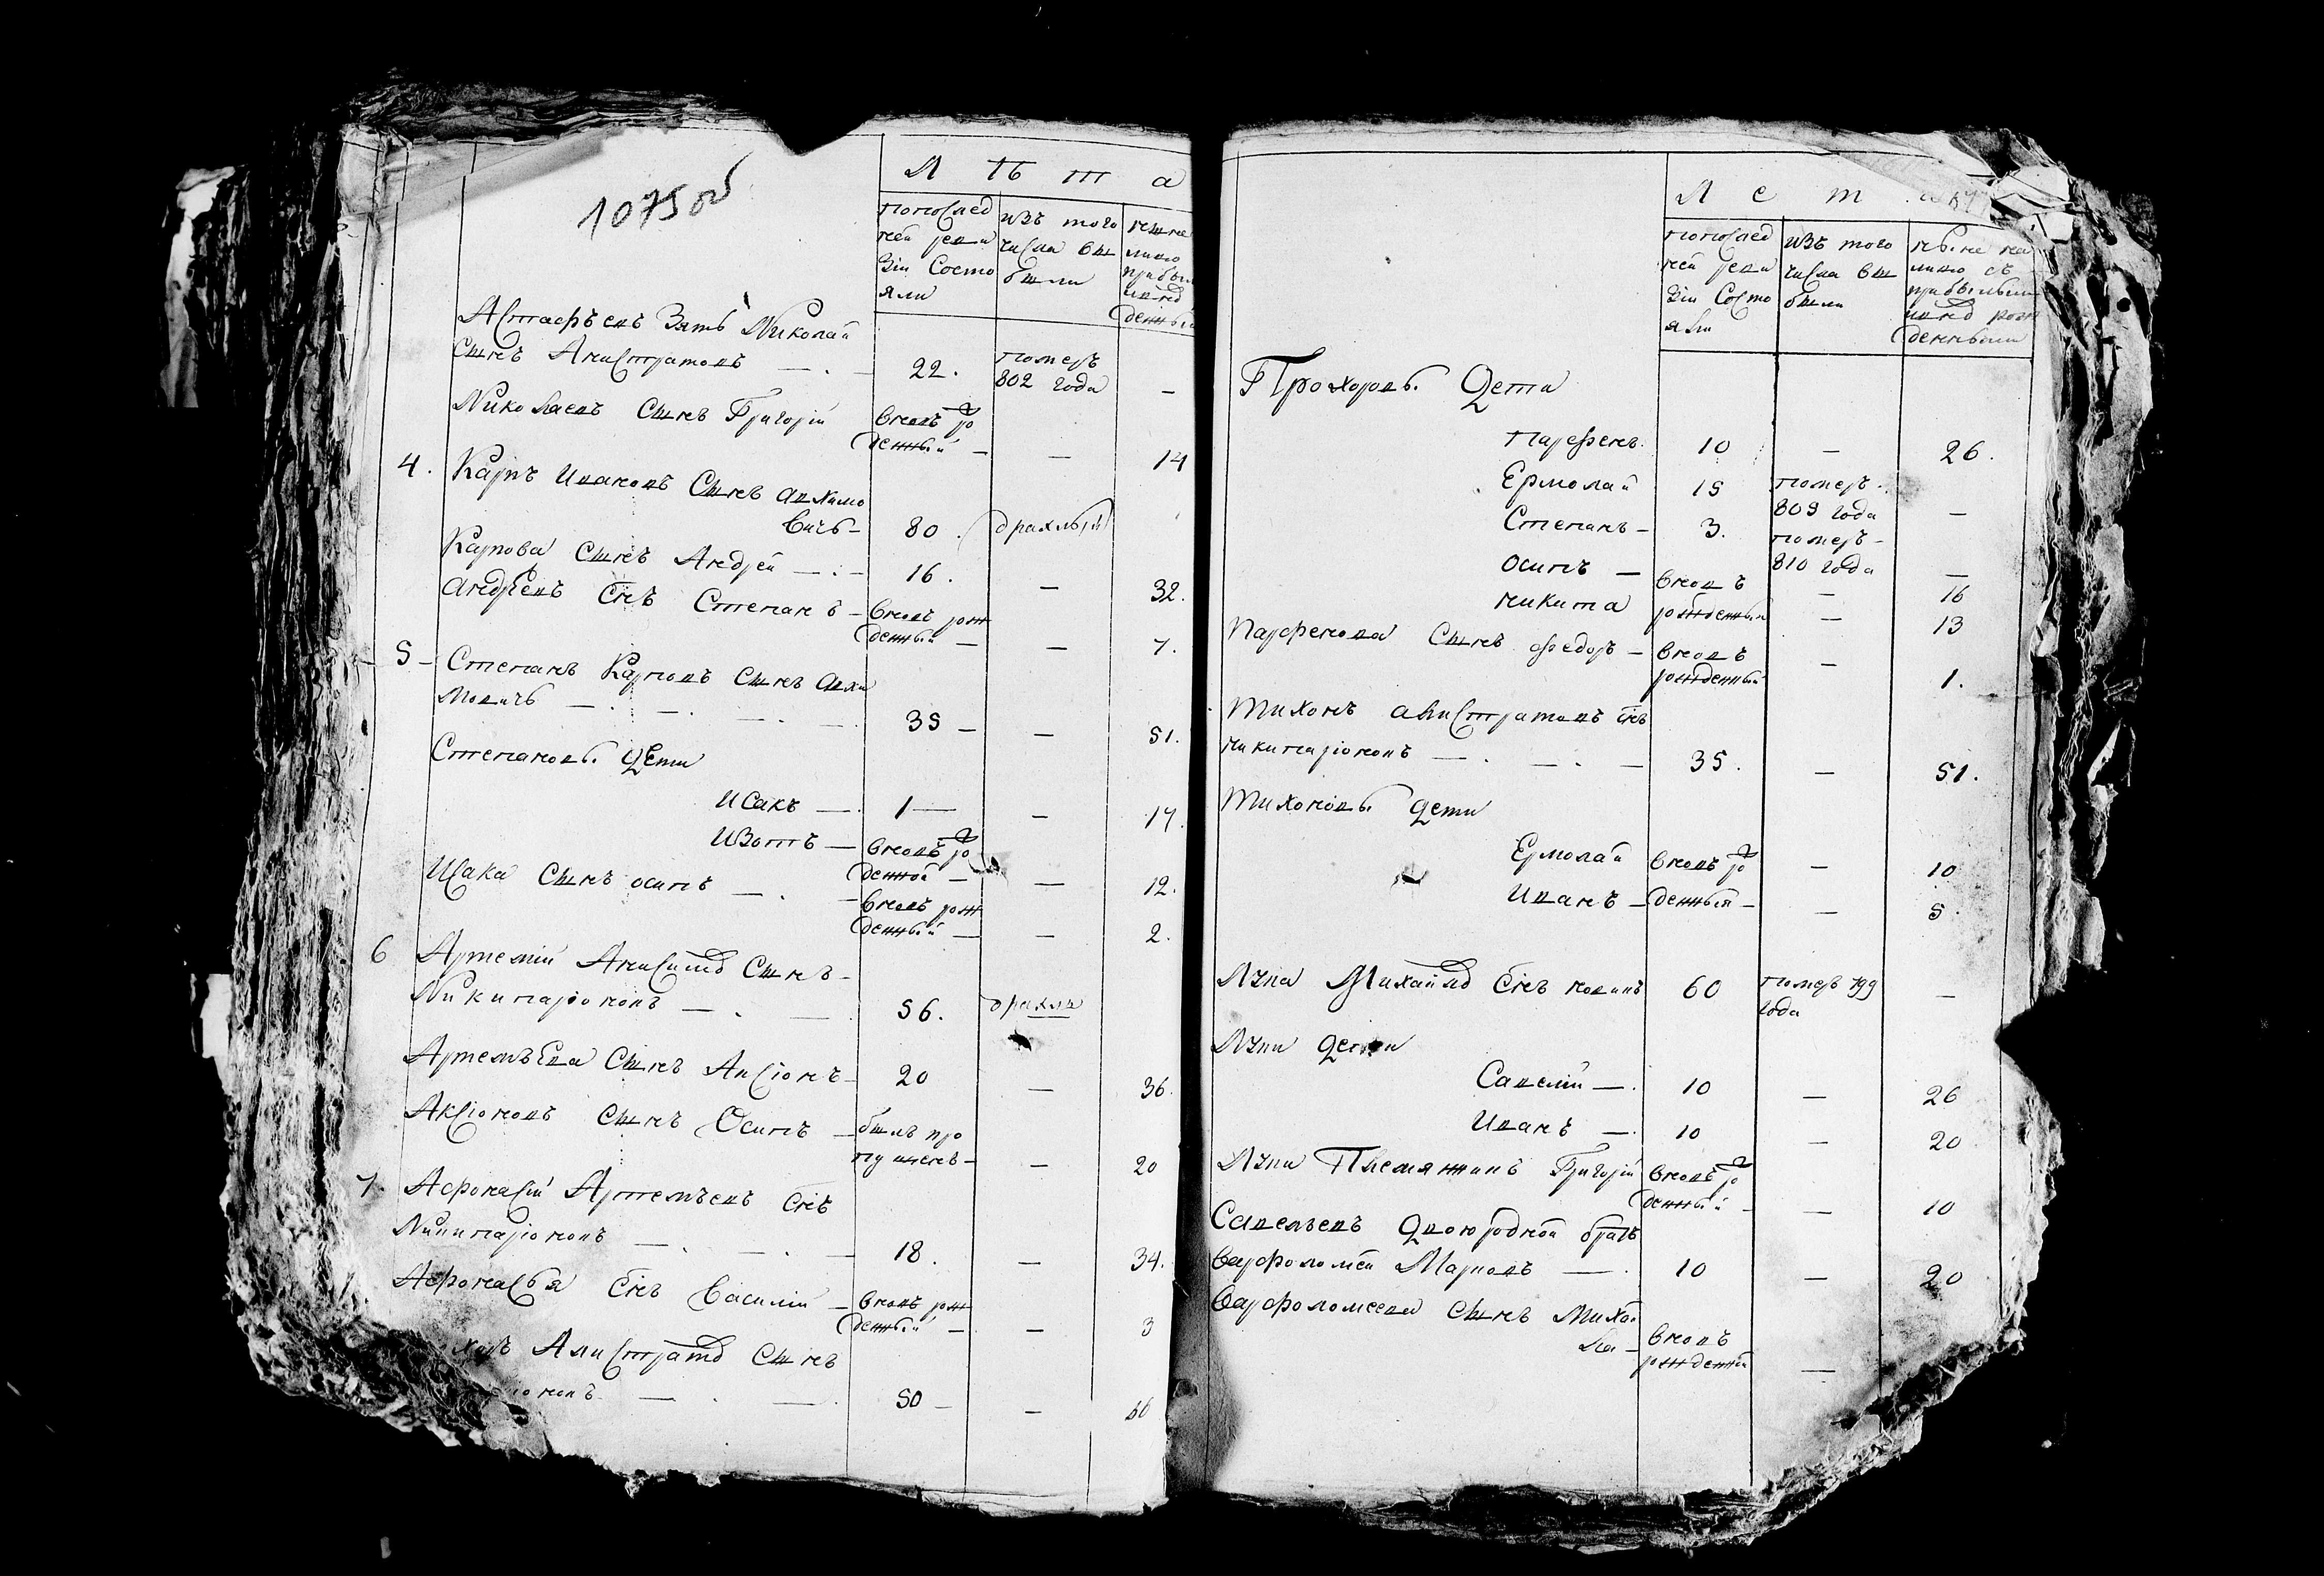 1075 об
Л ѣ т а
попослед
ней реви
зіи Состо
яли
изъ того
числа вы
были
ныне
лицо
прибы
денны
Астафьевъ Зять Николай
сынъ Анистратовъ — . — 22. померъ 802 года —
Николаевъ сынъ Григорій вновь рожденный — — 14
4. Карпъ Ивановъ Сынъ авхимо
вичь — 80. драхлый
Карпова сынъ Андрей — . — 16. — 32.
андревъ сынъ Степанъ — вновь рож
денный — — 7.
5 — Степанъ Карповъ сынъ авхи
мовичь — . — . — 35 — — 51.
Степановы дети
Исакъ — 1 — — 17.
Изотъ — вновь рожденной — — 12.
Исака сынъ осипъ — . — вновь рож
денный — — 2.
6 Артемій Анис сынъ —
Никипаріоновъ — . — 56. драхлъ
Артемьева сынъ Аксіонъ — 20 — 36.
Аксіоновъ сынъ Осипъ — былъ про
пущенъ — — 20
7. Афонасій Артемьевъ сынъ
Никипаріоновъ — . — . — 18. — 34.
Афонасья сынъ Василій — вновь рож
денный — — 3
сынъ
іоновъ — . — . 50 — — 66
Л е т а
попослед
ней реви
зіи Состо
яли
изъ того
числа вы
были
ныне на
лицо съ
прибылыми
и рож
денными
Прохоровы Дети
Парфенъ. 10 — 26.
Ермолай 15 померъ 809 года —
Степанъ — 3. померъ — 810 года —
Осипъ — вновь — 16
никита рожденныи — 13
Парфенова сынъ федоръ — вновь
рожденный — 1.
Тихонъ сынъ
никипаріоновъ — . — . — 35. — 51.
Тихоновы дети
Ермолай вновь ро — 10
Иванъ — денныя — — 5.
Лупа Михайл сынъ 60 померъ 799
года —
Лупи дети
Савелій — . 10 — 26
Иванъ — . 10 — 20
Лупи Племянникъ Григорій вновь рож
денный — — 10
Савельевъ двоюродной братъ
Варфоломей Марковъ — . 10 — 20
Варфоломеева сынъ Михай
ла — вновь
рожденной —